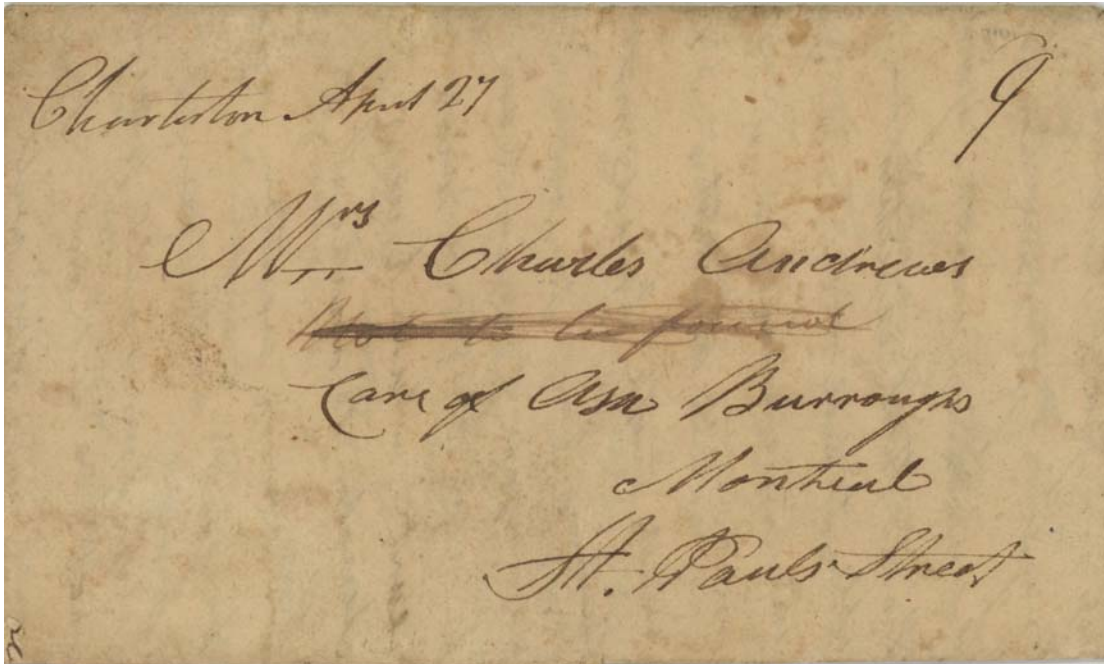 Charleston April 27
9
Mrs Charles Andrews
Not to be found
Care of Asa Burroughs
Montreal
St. Pauls Street